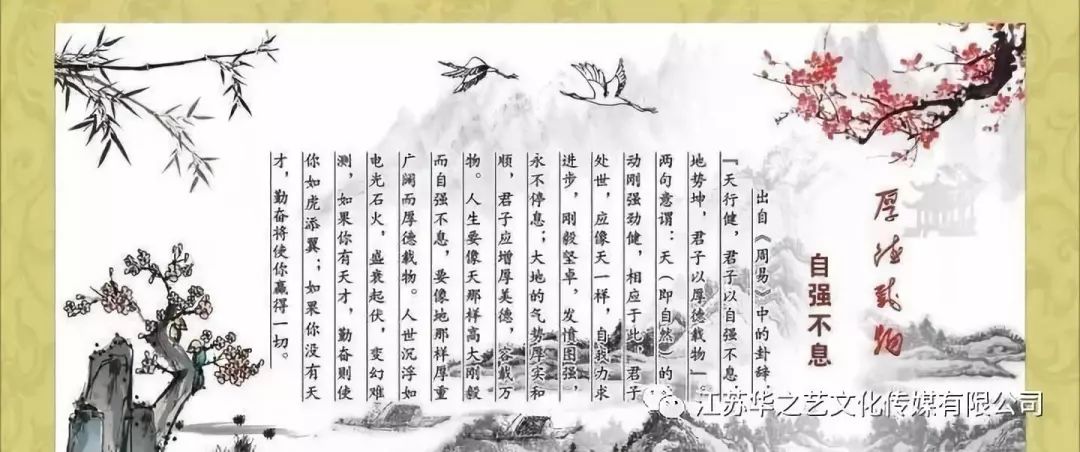 厚德载物
自强不息
出自《周易》中的卦辞，
『天行健，君子以自强不息
地势坤，君子以厚德载物』
两句意谓：天（即自然）的
动刚强劲健，相应于此，君子
处世，应像天一样，自我力求
进步，刚毅坚卓，发愤图强，
永不停息；大地的气势厚实和
顺，君子应增厚美德，容载万
物。人生要像天那样高大刚毅
而自强不息，要像地那样厚重
广阔而厚德载物。人世沉浮如
电光石火，盛衰起伏，变幻难
测，如果你有天才，勤奋则使
你如虎添翼；如果你没有天
才，勤奋将使你赢得一切。
江苏华之艺文化传媒有限公司